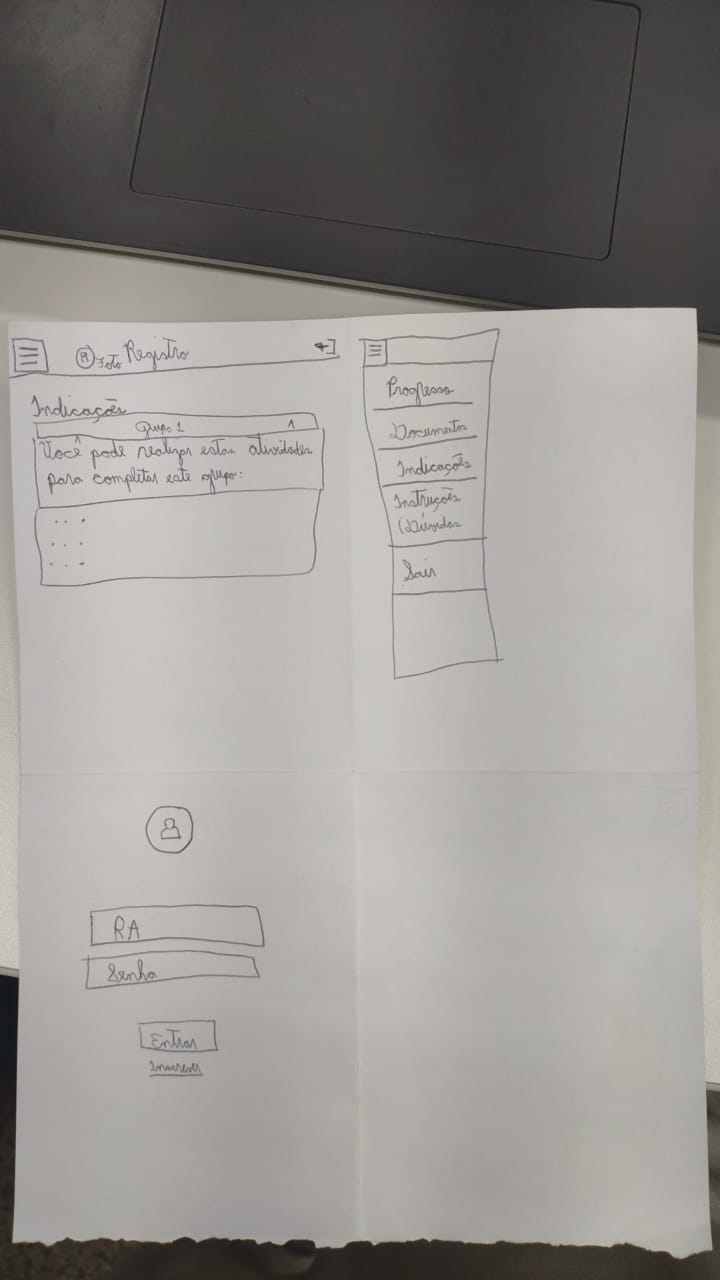 Foto Registro
Indicações
Grupo 1
Você pode realizar estas atividades
para completar este grupo:
Progresso
Documentos
Indicações
Instruções
(Dúvidas
Sair
RA
Senha
Entrar
Inscrever